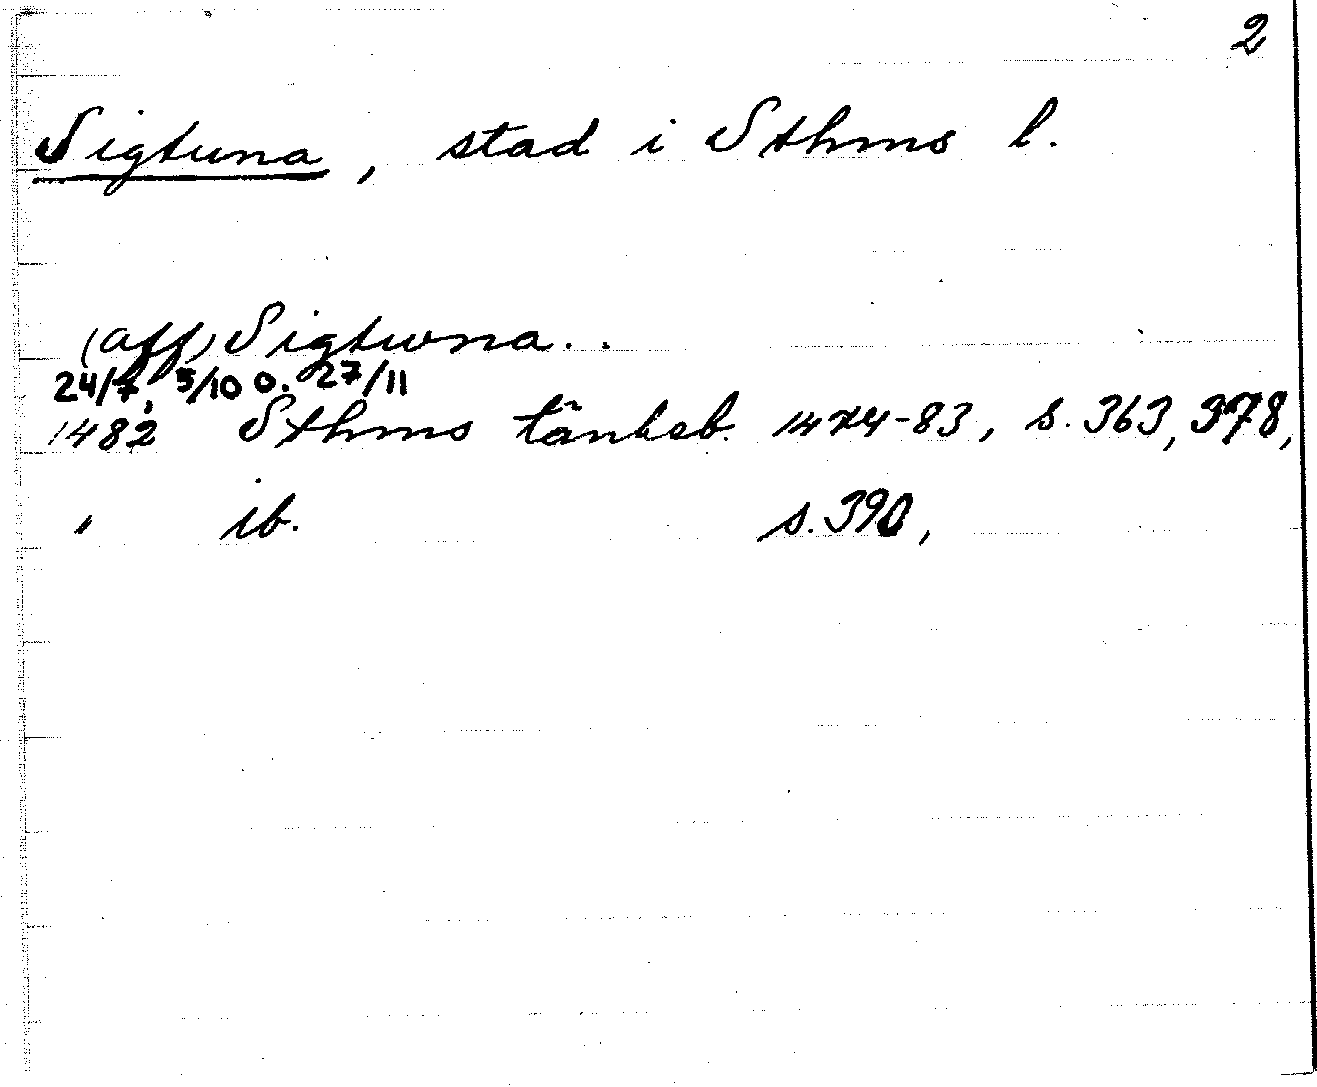 2
Sigtuna, stad i Sthms l.
(aff) Sigtwna..
24/7, 5/10 o. 27/11
1482 Sthms tänkeb. 1474-83, s. 363, 378,
" ib. s. 390,